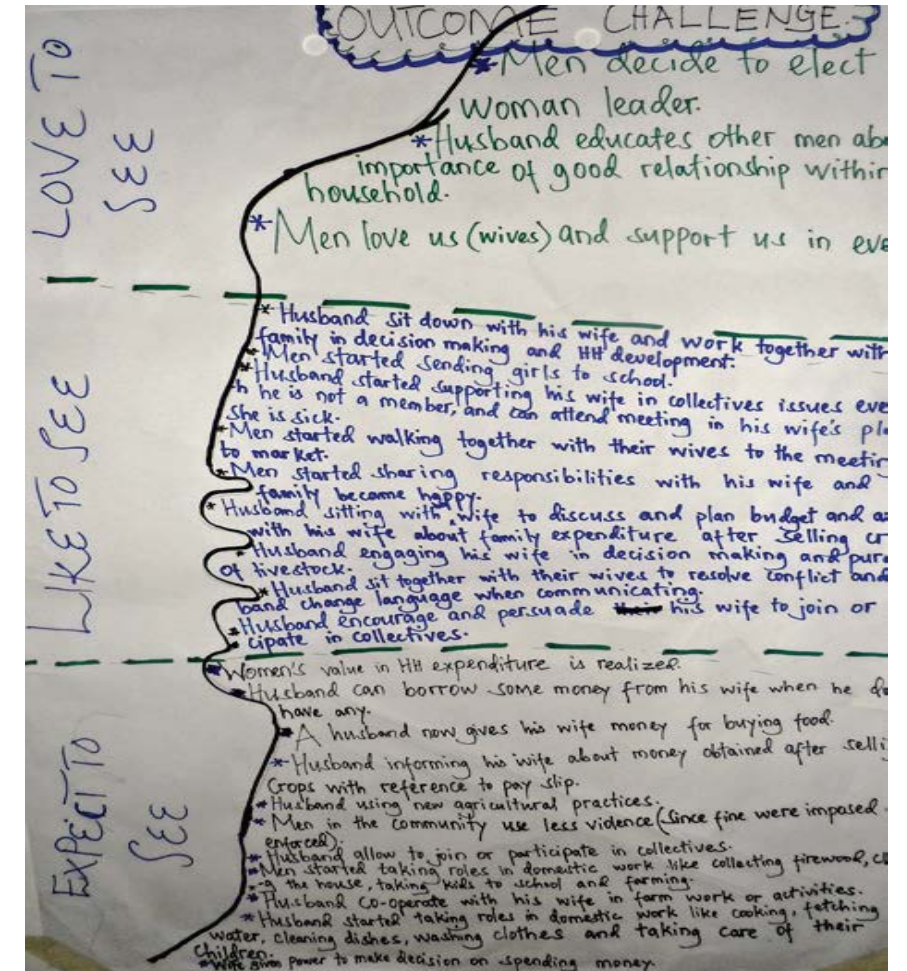 OUTCOME CHALLENGE
LOVE TO
SEE
* Men decide to elect
woman leader.
* Husband educates other men
importance of good relationship within
household.
* Men love us (wives) and support us in
LIKE TO SEE
* Husband sit down with his wife and work together with
family in decision making and HH development.
* Men started sending girls to school.
* Husband started supporting his wife in collectives issues
h he is not a member, and can attend meeting in his wife's
she is sick.
* Men started walking together with their wives to the
to market.
* Men started sharing responsibilities with his wife and
family become happy.
* Husband sitting with wife to discuss and plan budget and
with his wife about family expenditure after selling
* Husband engaging his wife in decision making and
of livestock.
* Husband sit together with their wives to resolve conflict and
band change language when communicating.
* Husband encourage and persuade his wife to join or
cipate in collectives.
EXPECT TO
SEE
* Women's value in HH expenditure is realized.
* Husband can borrow some money from his wife when he
have any.
* A husband now gives his wife money for buying food.
* Husband informing his wife about money obtained after
Crops with reference to pay slip.
* Husband using new agricultural practices.
* Men in the community use less violence (Since fine were imposed
enforced).
* Husband allow to join or participate in collectives.
* Men started taking roles in domestic work like collecting firewood,
-g the house, taking kids to school and farming.
* Husband co-operate with his wife in farm work or activities.
* Husband started taking roles in domestic work like cooking, fetching
water, cleaning dishes, washing clothes and taking care of their
Children.
* Wife given power to make decision on spending money.